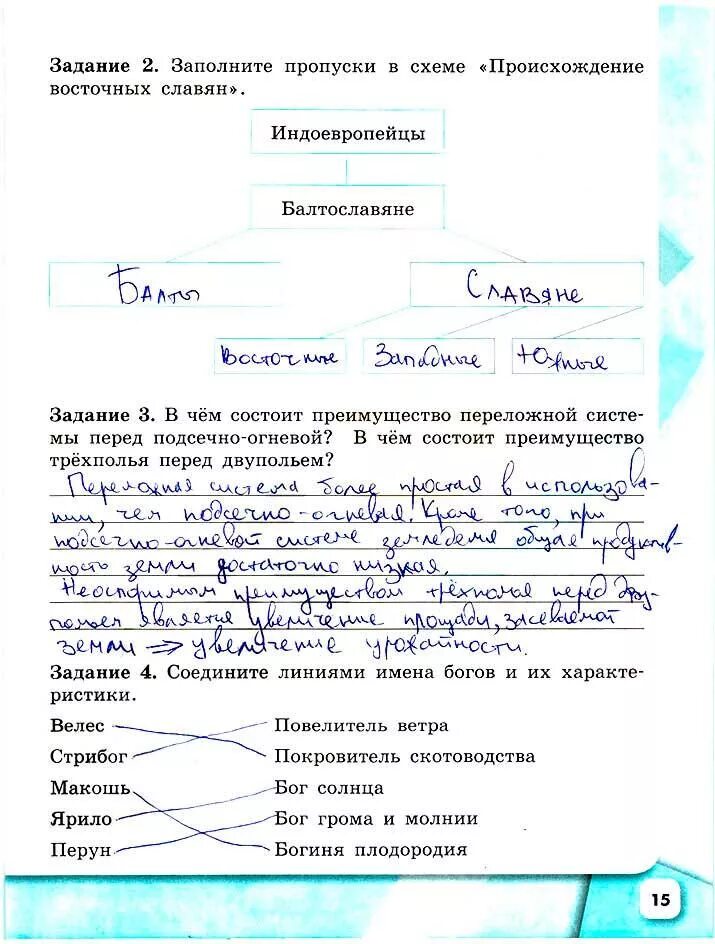 Задание 2. Заполните пропуски в схеме «Происхождение
восточных славян».
Индоевропейцы
Балтославяне
Балты
Славяне
Восточные
Западные
Южные
Задание 3. В чём состоит преимущество переложной систе-
мы перед подсечно-огневой? В чём состоит преимущество
трёхполья перед двупольем?
Переложная система более простая в использова-
нии, чем подсечно-огневая. Кроме того, при
подсечно-огневой системе земледелия общая продуктив-
ность земли достаточно низкая.
Неоспоримым преимуществом трёхполья перед дву-
польем является увеличение площади, засеваемой
земли ⇒ увеличение урожайности.
Задание 4. Соедините линиями имена богов и их характе-
ристики.
Велес Повелитель ветра
Стрибог Покровитель скотоводства
Макошь Бог солнца
Ярило Бог грома и молнии
Перун Богиня плодородия
15